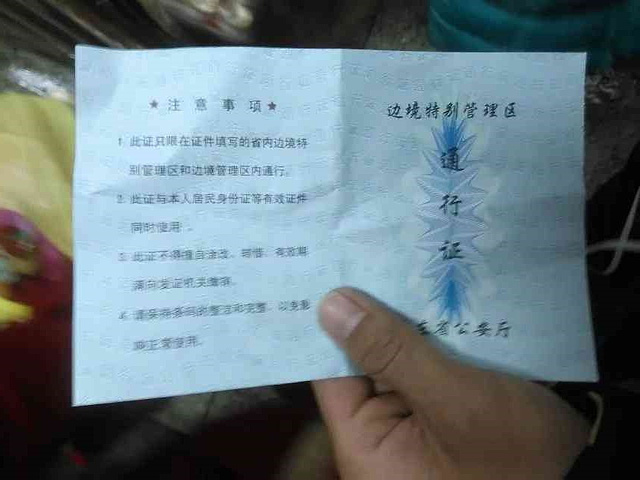 ★ 注意事项 ★
1. 此证只限在证件填写的省内边境特
别管理区和边境管理区内通行。
2. 此证与本人居民身份证等有效证件
同时使用。
3. 此证不得擅自涂改、转借，有效期
满向发证机关缴销。
4. 请保持条码的整洁和完整，以免影
响正常使用。
边境特别管理区
通
行
证
东省公安厅